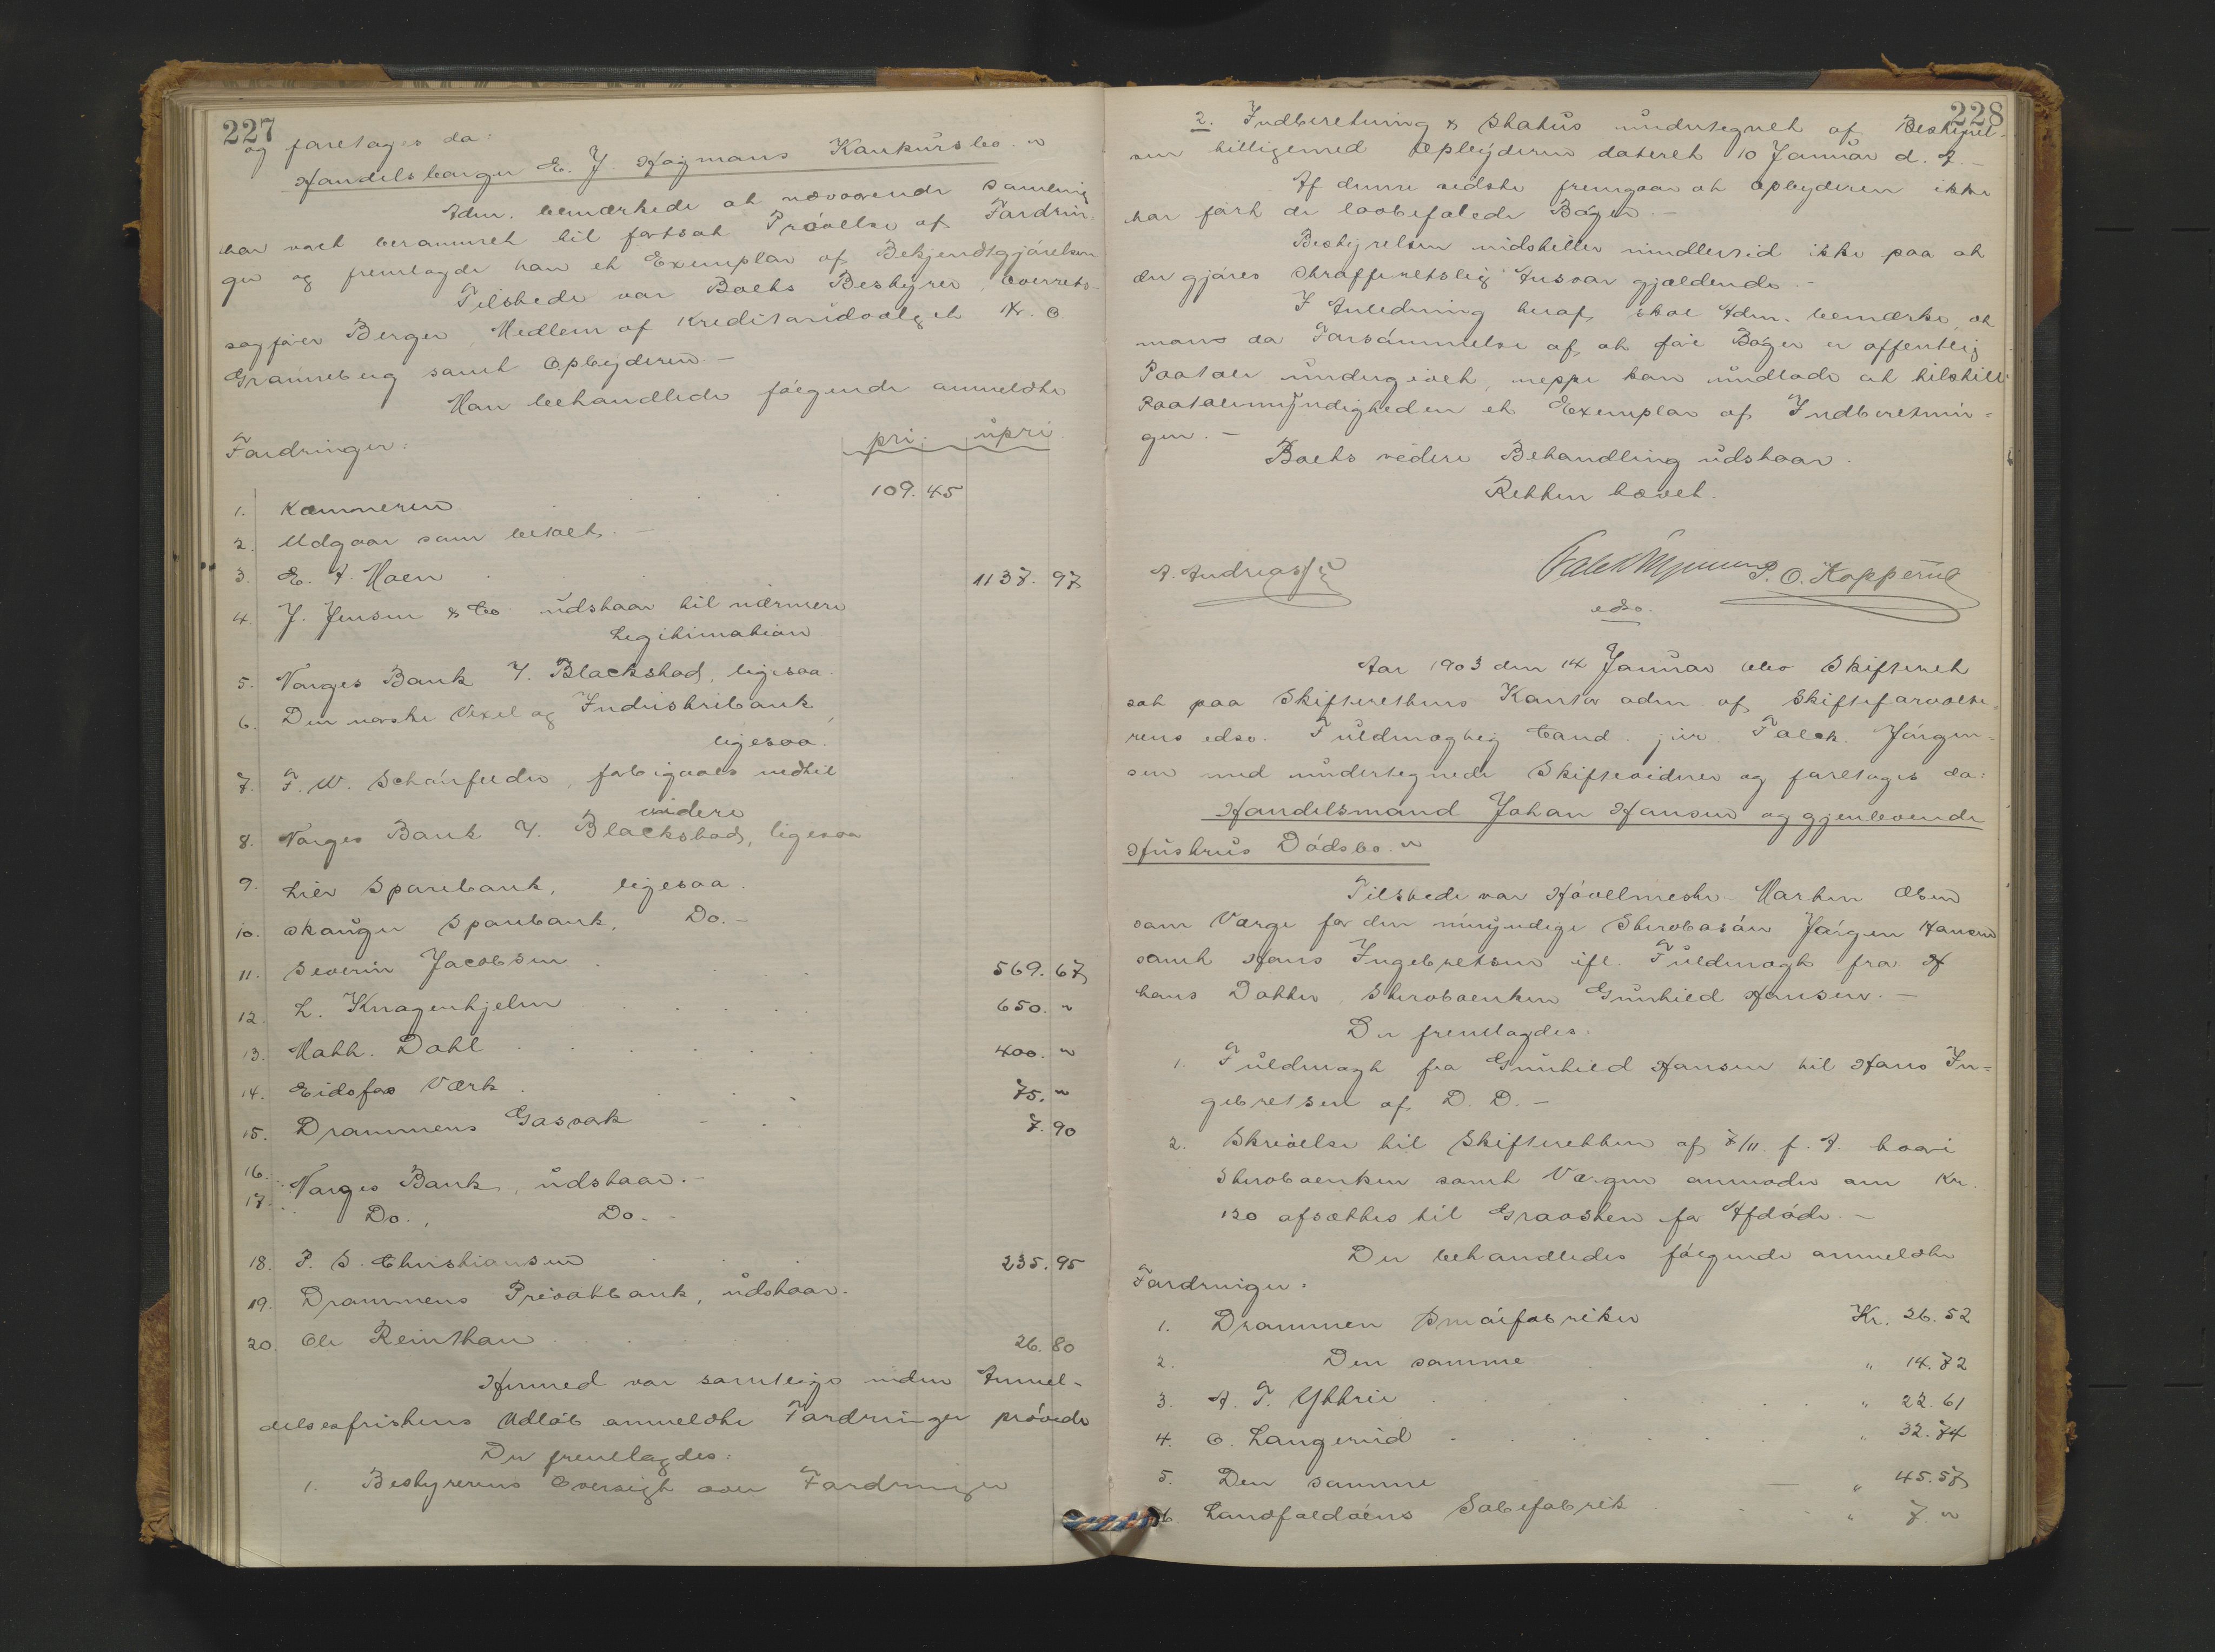 227
og foretages da:
Handelsborger E. J. Hagmans Konkursbo. "
Adm. bemærkede at nærværende Samling
har været berammet til fortsat Prøvelse af Fordrin-
ger og fremlagde han et Exemplar af Bekjendtgjørelsen
Tilstede var Boets Bestyrer, Overrets-
sagfører Berger, Medlem af Kreditorudvalget Hr. C.
Grønneberg samt Opbyderen. —
Man behandlede følgende anmeldte
Fordringer:
pri. upri.
1. Kæmneren 109. 45
2. Udgaar som betalt. —
3. E. A. Moen 1137. 97
4. J. Jensen & Co. udstaar til nærmere
Legitimation
5. Norges Bank %. Blackstad, ligesaa.
6. Den norske Vexel og Industribank,
ligesaa.
7. F. W. Schønfelder, forbigaaes indtil
videre
8. Norges Bank %. Blackstad, ligesaa
9. Lier Sparebank, ligesaa.
10. Skauger Sparebank, Do. —
11. Severin Jacobsen 569. 67
12. L. Knagenhjelm 650. "
13. Math. Dahl 400. "
14. Eidsfos Værk 75. "
15. Drammens Gasværk 7. 90
16. Norges Bank, udstaar. —
17. Do., Do. —
18. P. S. Christiansen 235. 95
19. Drammens Privatbank, udstaar.
20. Ole Reinskau 26. 80
Hermed var samtlige inden Anmel-
delsesfristens Udløb anmeldte Fordringer prøvede
Der fremlagdes:
1. Bestyrerens Oversigt over Fordringer
228
2. Indberetning & Status undertegnet af Bestyrel-
sen tilligemed Opbyderen dateret 10 Januar d. A. —
Af denne sidste fremgaar at Opbyderen ikke
har ført de lovbefalede Bøger. —
Bestyrelsen indstiller imidlertid ikke paa at
der gjøres strafferetslig Ansvar gjældende. —
I Anledning heraf skal Adm. bemærke, at
man da Forsømmelse af at føre Bøger er offentlig
Paatale undergivet, neppe kan undlade at tilstille
Paatalemyndigheden et Exemplar af Indberetnin-
gen. —
Boets videre Behandling udstaar.
Retten hævet.
Falck Jørgensen
edsv.
A. Andreassen
P. O. Kopperud
Aar 1903 den 14 Januar blev Skifteret
sat paa Skifterettens Kontor adm. af Skifteforvalte-
rens edsv. Fuldmægtig Cand. jur. Falck Jørgen-
sen med undertegnede Skiftevidner og foretages da:
Handelsmand Johan Hansen og gjenlevende
Hustrus Dødsbo. "
Tilstede var Høvellmester Marten Olsen
som Værge for den umyndige Stervbosøn Jørgen Hansen
samt Hans Ingebretsen ifl. Fuldmagt fra
hans Datter, Stervboenken Gunhild Hansen. —
Der fremlagdes:
1. Fuldmagt fra Gunhild Hansen til Hans In-
gebretsen af D. D. —
2. Skrivelse til Skifteretten af 7/11. f. A. hvori
Stervboenken samt Værgen anmoder om Kr.
120 afsættes til Gravsten for Afdøde. —
Der behandledes følgende anmeldte
Fordringer:
1. Drammen Smørfabriker Kr. 26. 52
2. Den samme " 14. 72
3. A. T. Yttrie " 22. 61
4. O. Langerud " 32. 74
5. Den samme — " 45. 57
6. Landfaldøens Sæbefabrik " 7. "